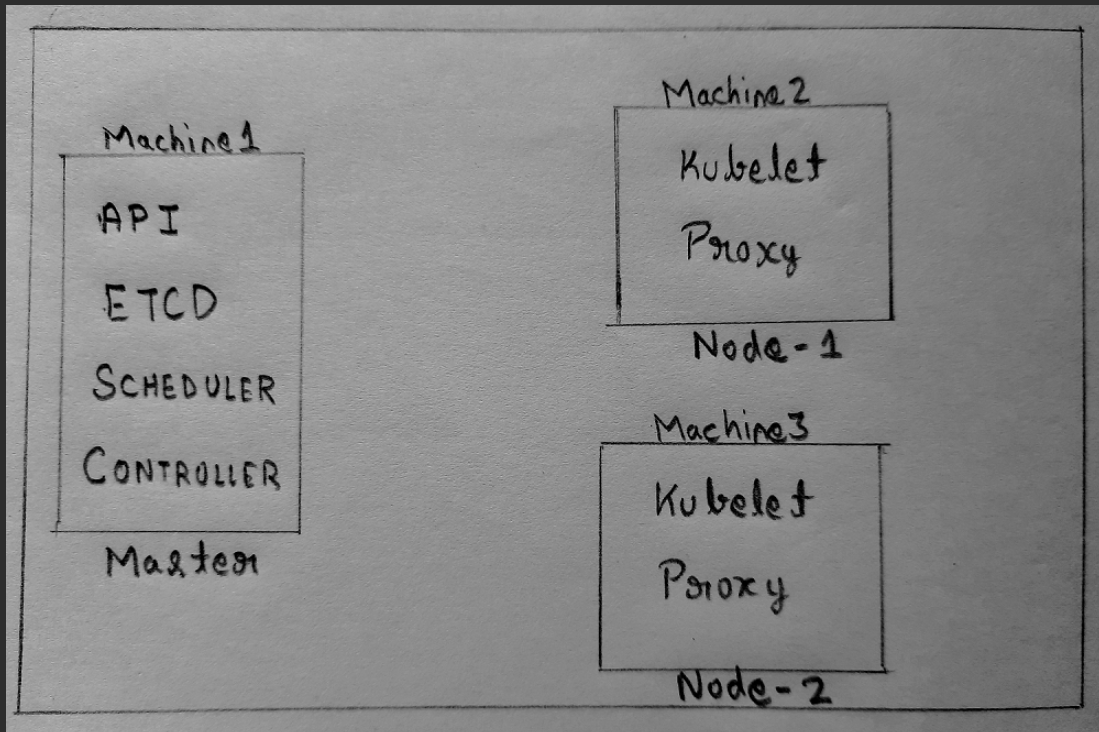 Machine 1
API
ETCD
SCHEDULER
CONTROLLER
Master
Machine 2
Kubelet
Proxy
Node-1
Machine 3
Kubelet
Proxy
Node-2